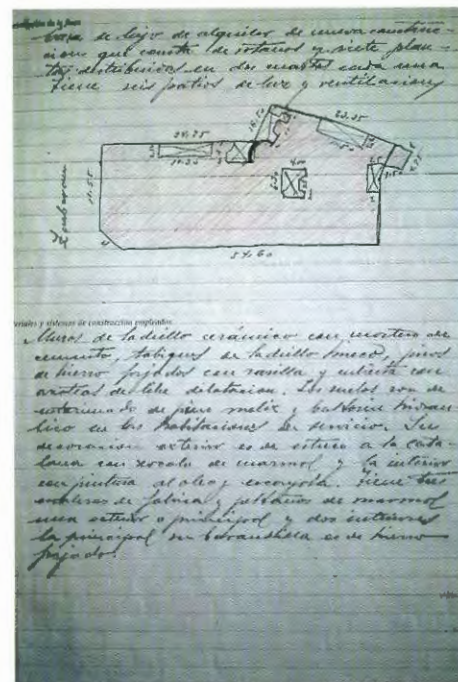 Descripción de la finca
Casa de lujo de alquiler de nueva construc-
cion que consta de sotanos y siete plan-
tas distribuidas en dos cuartos cada una
tiene seis patios de luz y ventilacion
24.25
23.35
4.00
11.55
54.60
Materiales y sistemas de construcción empleados
Muros de ladrillo cerámico con mortero de
cemento, tabiques de ladrillo hueco, pisos
de hierro forjados con rasilla y cubierta con
azoteas de libre dilatacion. Los suelos son de
entarimado de pino melix y baldosin hidrau
lico en las habitaciones de servicio. Su
decoracion exterior es de estuco a la cata-
lana con zocalo de marmol y la interior
con pintura al oleo y escayola. Tiene tres
escaleras de fabrica y peldaños de marmol
una exterior o principal y dos interiores
la principal su barandilla es de hierro
forjado.